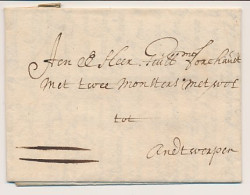 Aen E Heer Guill mo
met twee monsters met wol
tot
Andtwerpen